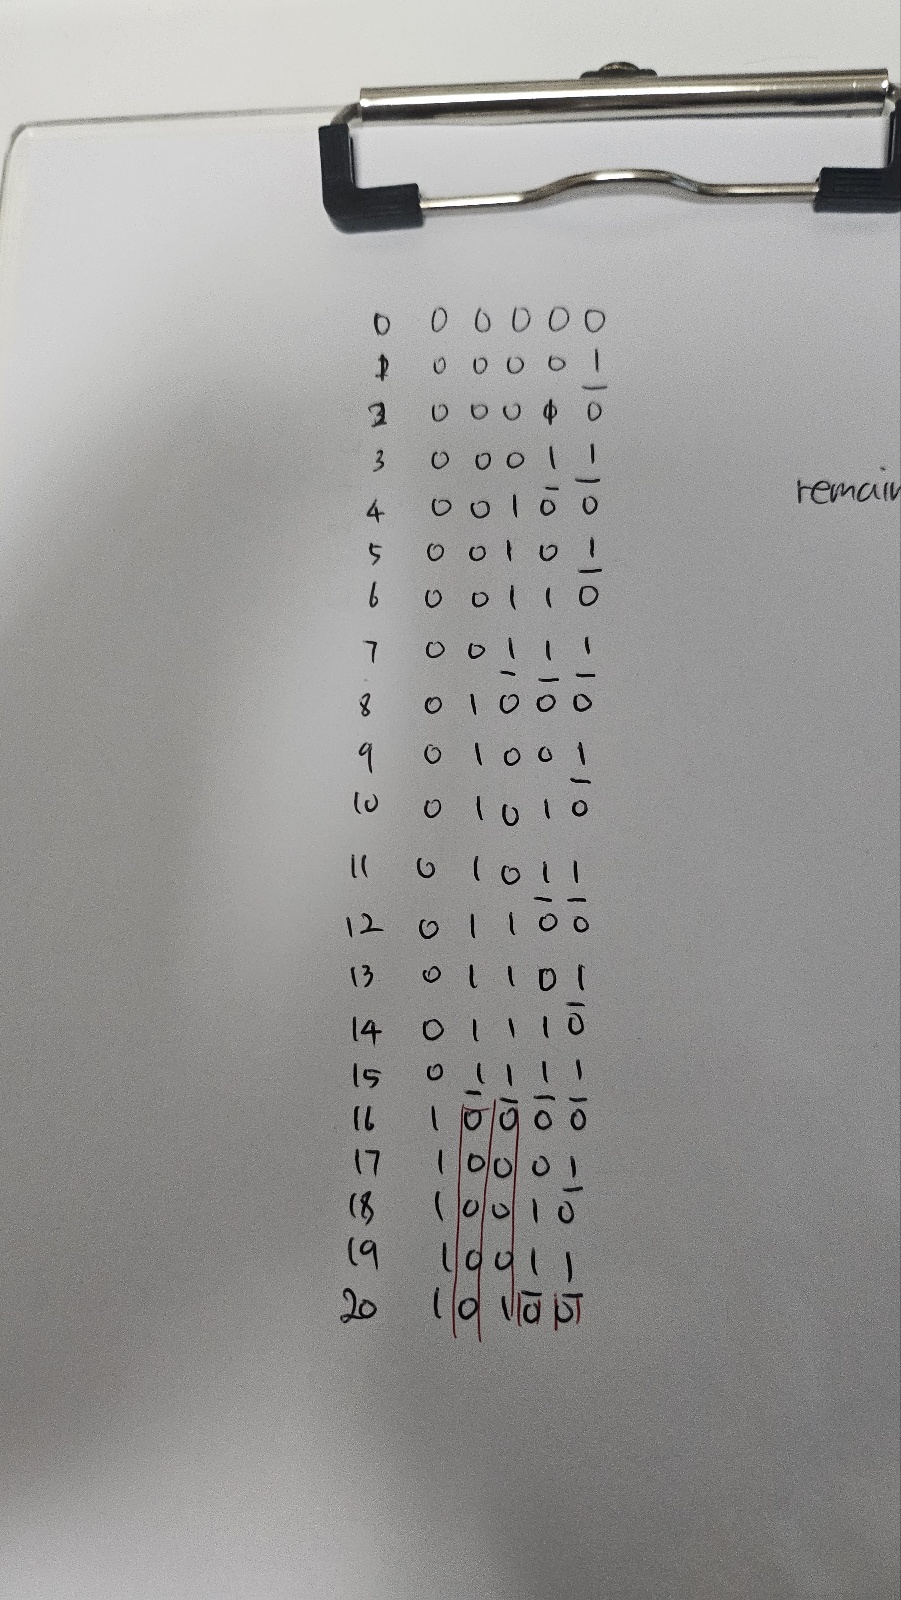 0 0 0 0 0 0
1 0 0 0 0 1
2 0 0 0 0
3 0 0 0 1 1
remain
4 0 0 1 0 0
5 0 0 1 0 1
6 0 0 1 1 0
7 0 0 1 1 1
8 0 1 0 0 0
9 0 1 0 0 1
10 0 1 0 1 0
11 0 1 0 1 1
12 0 1 1 0 0
13 0 1 1 0 1
14 0 1 1 1 0
15 0 1 1 1 1
16 1 0 0 0 0
17 1 0 0 0 1
18 1 0 0 1 0
19 1 0 0 1 1
20 1 0 1 0 0